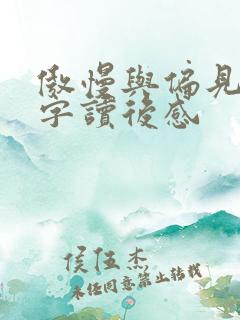 傲慢與偏見
字讀後感
侯伍杰
未任同意禁止转载